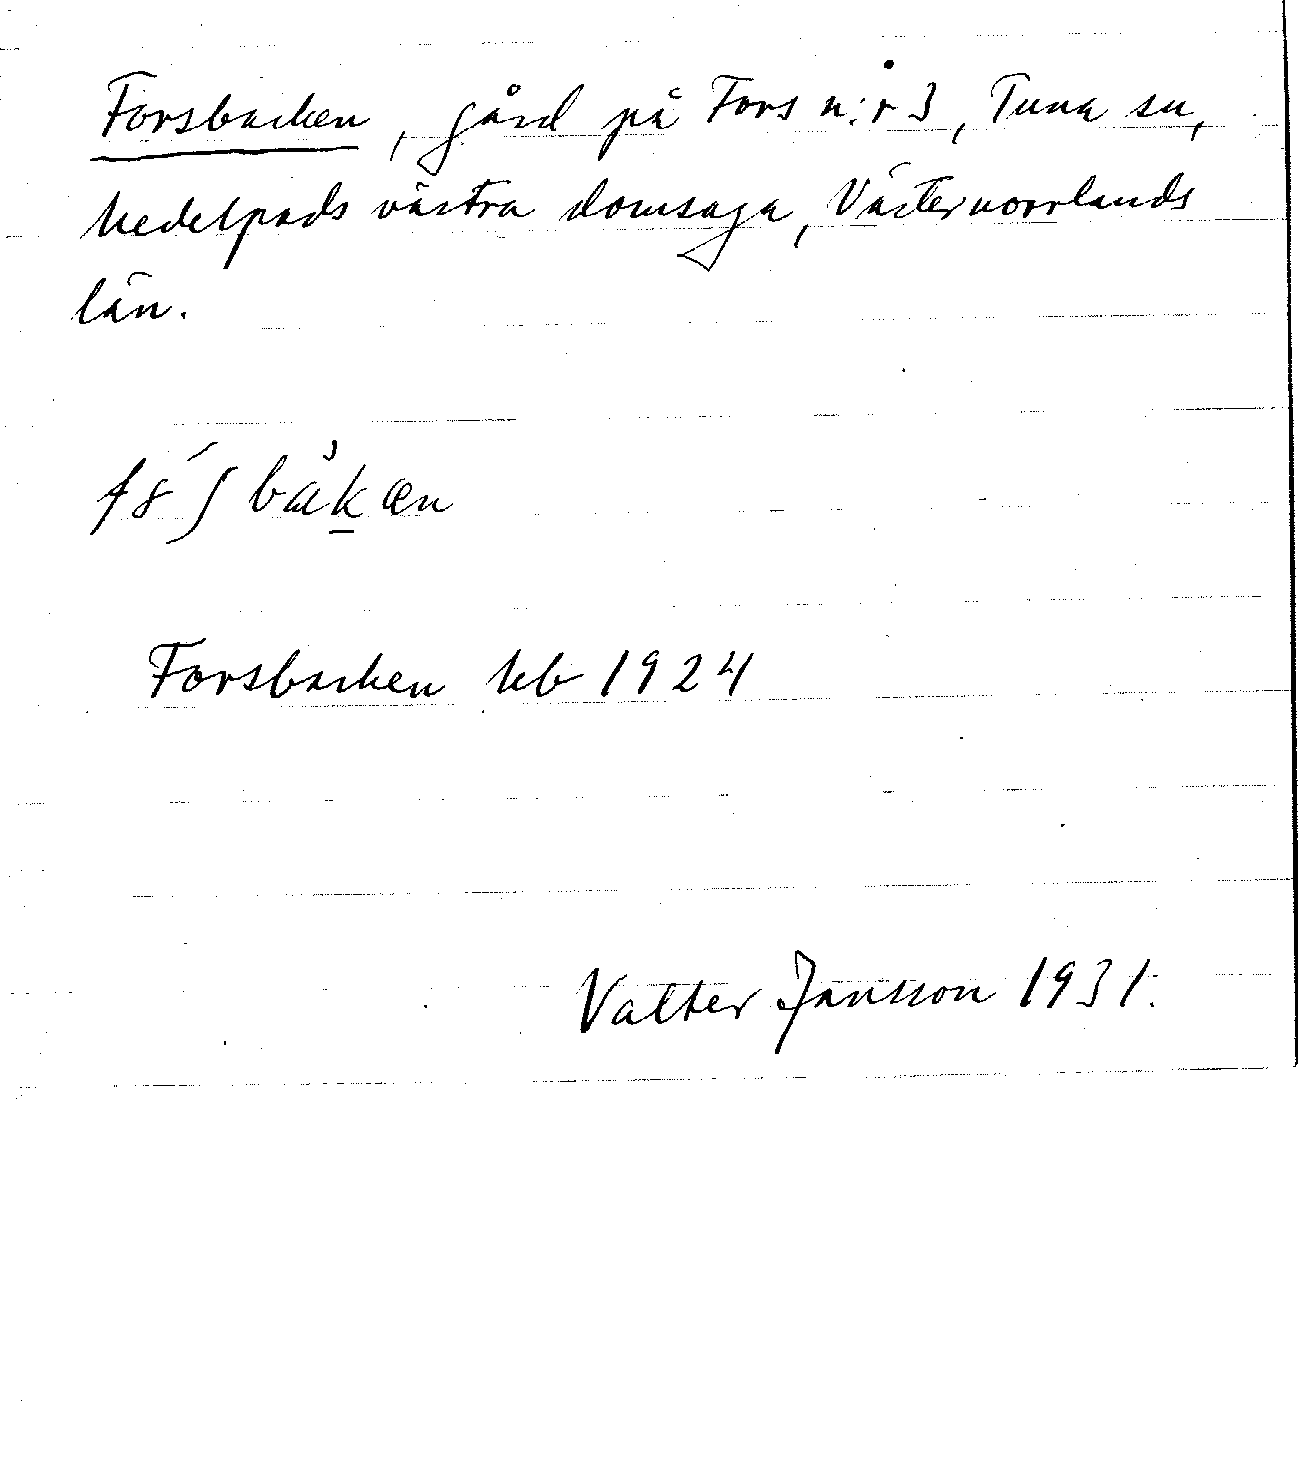 Forsbacken, gård på Fors n:r 3, Tuna sn,
Medelpads västra domsaga, Västernorrlands
län.
Forsbacken kb 1924
Valter Jansson 1931.